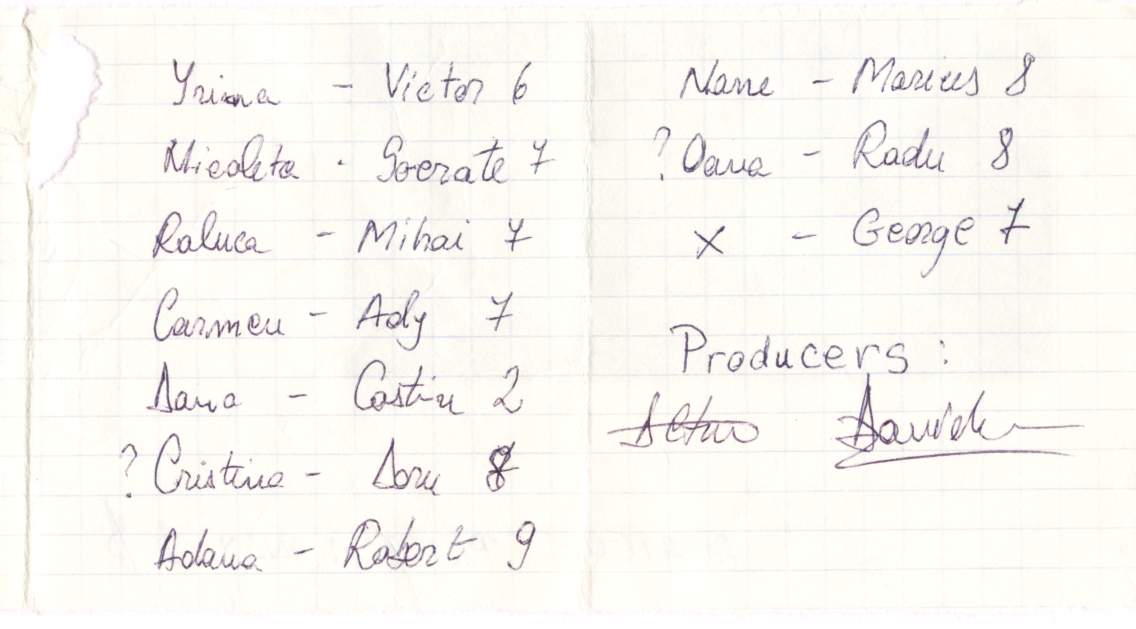 Yrina - Victor 6
Nicoleta - Socrate 7
Raluca - Mihai 7
Carmen - Ady 7
Dana - Costin 2
? Cristina - Doru 8
Adana - Robert 9
Nane - Marius 8
? Oana - Radu 8
X - George 7
Producers: